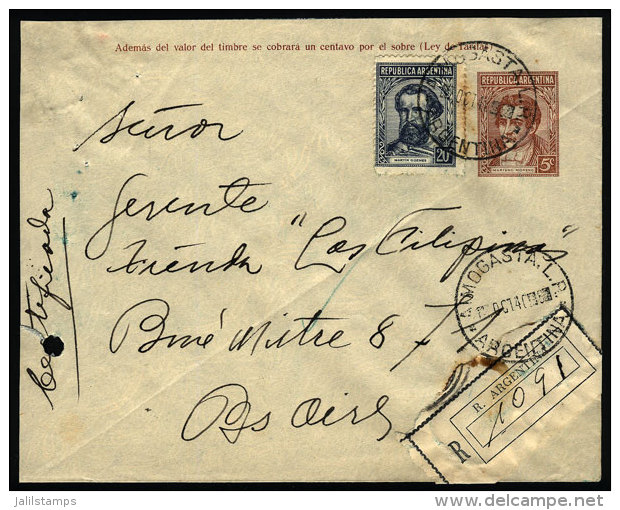 Además del valor del timbre se cobrará un centavo por el sobre (Ley de Tarifas)
REPUBLICA ARGENTINA
20
MARTIN GÜEMES
REPUBLICA ARGENTINA
5¢
MARIANO MORENO
ARGENTINA
Señor
Gerente "Las Filipinas"
tienda
Bmé Mitre
Bs Aires
Certificada
AMOGASTA. L.R.
OCT
ARGENTINA
R. ARGENTINA
R
1091
jalilstamps
delcampe.net